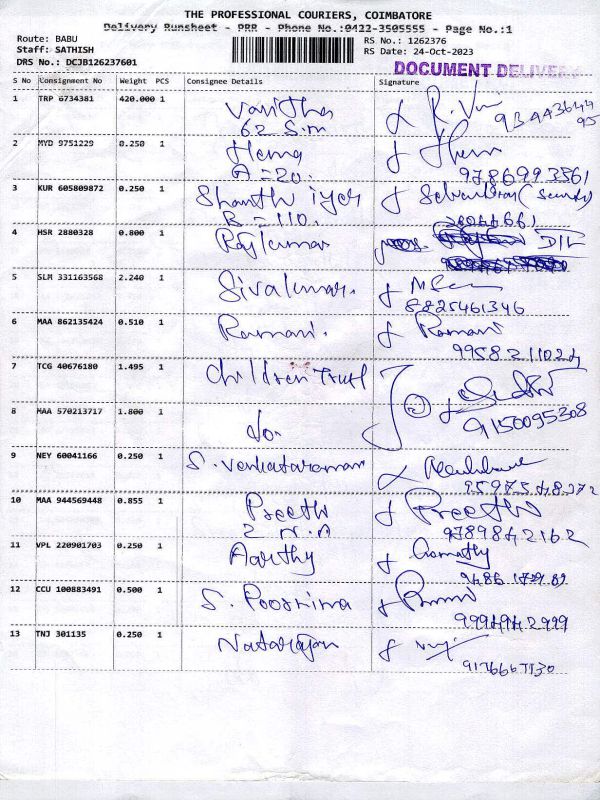 THE PROFESSIONAL COURIERS, COIMBATORE
Delivery Runsheet - PRR - Phone No.:0422-3505555 - Page No.:1
Route: BABU
RS No.: 1262376
Staff: SATHISH
RS Date: 24-Oct-2023
DRS No.: DCJB126237601
DOCUMENT DELIVERY
S No Consignment No Weight PCS Consignee Details Signature
1 TRP 6734381 420.000 1 Vanitha R. V
62 S.m
2 MYD 9751229 0.250 1 Hema
A = 20. 9786993561
3 KUR 605809872 0.250 1 Shanthi iyer
B = 110.
4 HSR 2880328 0.800 1 Rajkumar
5 SLM 331163568 2.240 1 Sivakumar.
8825461346
6 MAA 862135424 0.510 1 Ramani. Ramani
7 TCG 40676180 1.495 1 Children Trust
9150095308
8 MAA 570213717 1.800 1 do
9 NEY 60041166 0.250 1 S. Venkataraman
10 MAA 944569448 0.855 1 Preethi Preethi
2 N.A
11 VPL 220901703 0.250 1 Aarthy Gomathy
12 CCU 100883491 0.500 1 S. Poornima
13 TNJ 301135 0.250 1 Natarajan